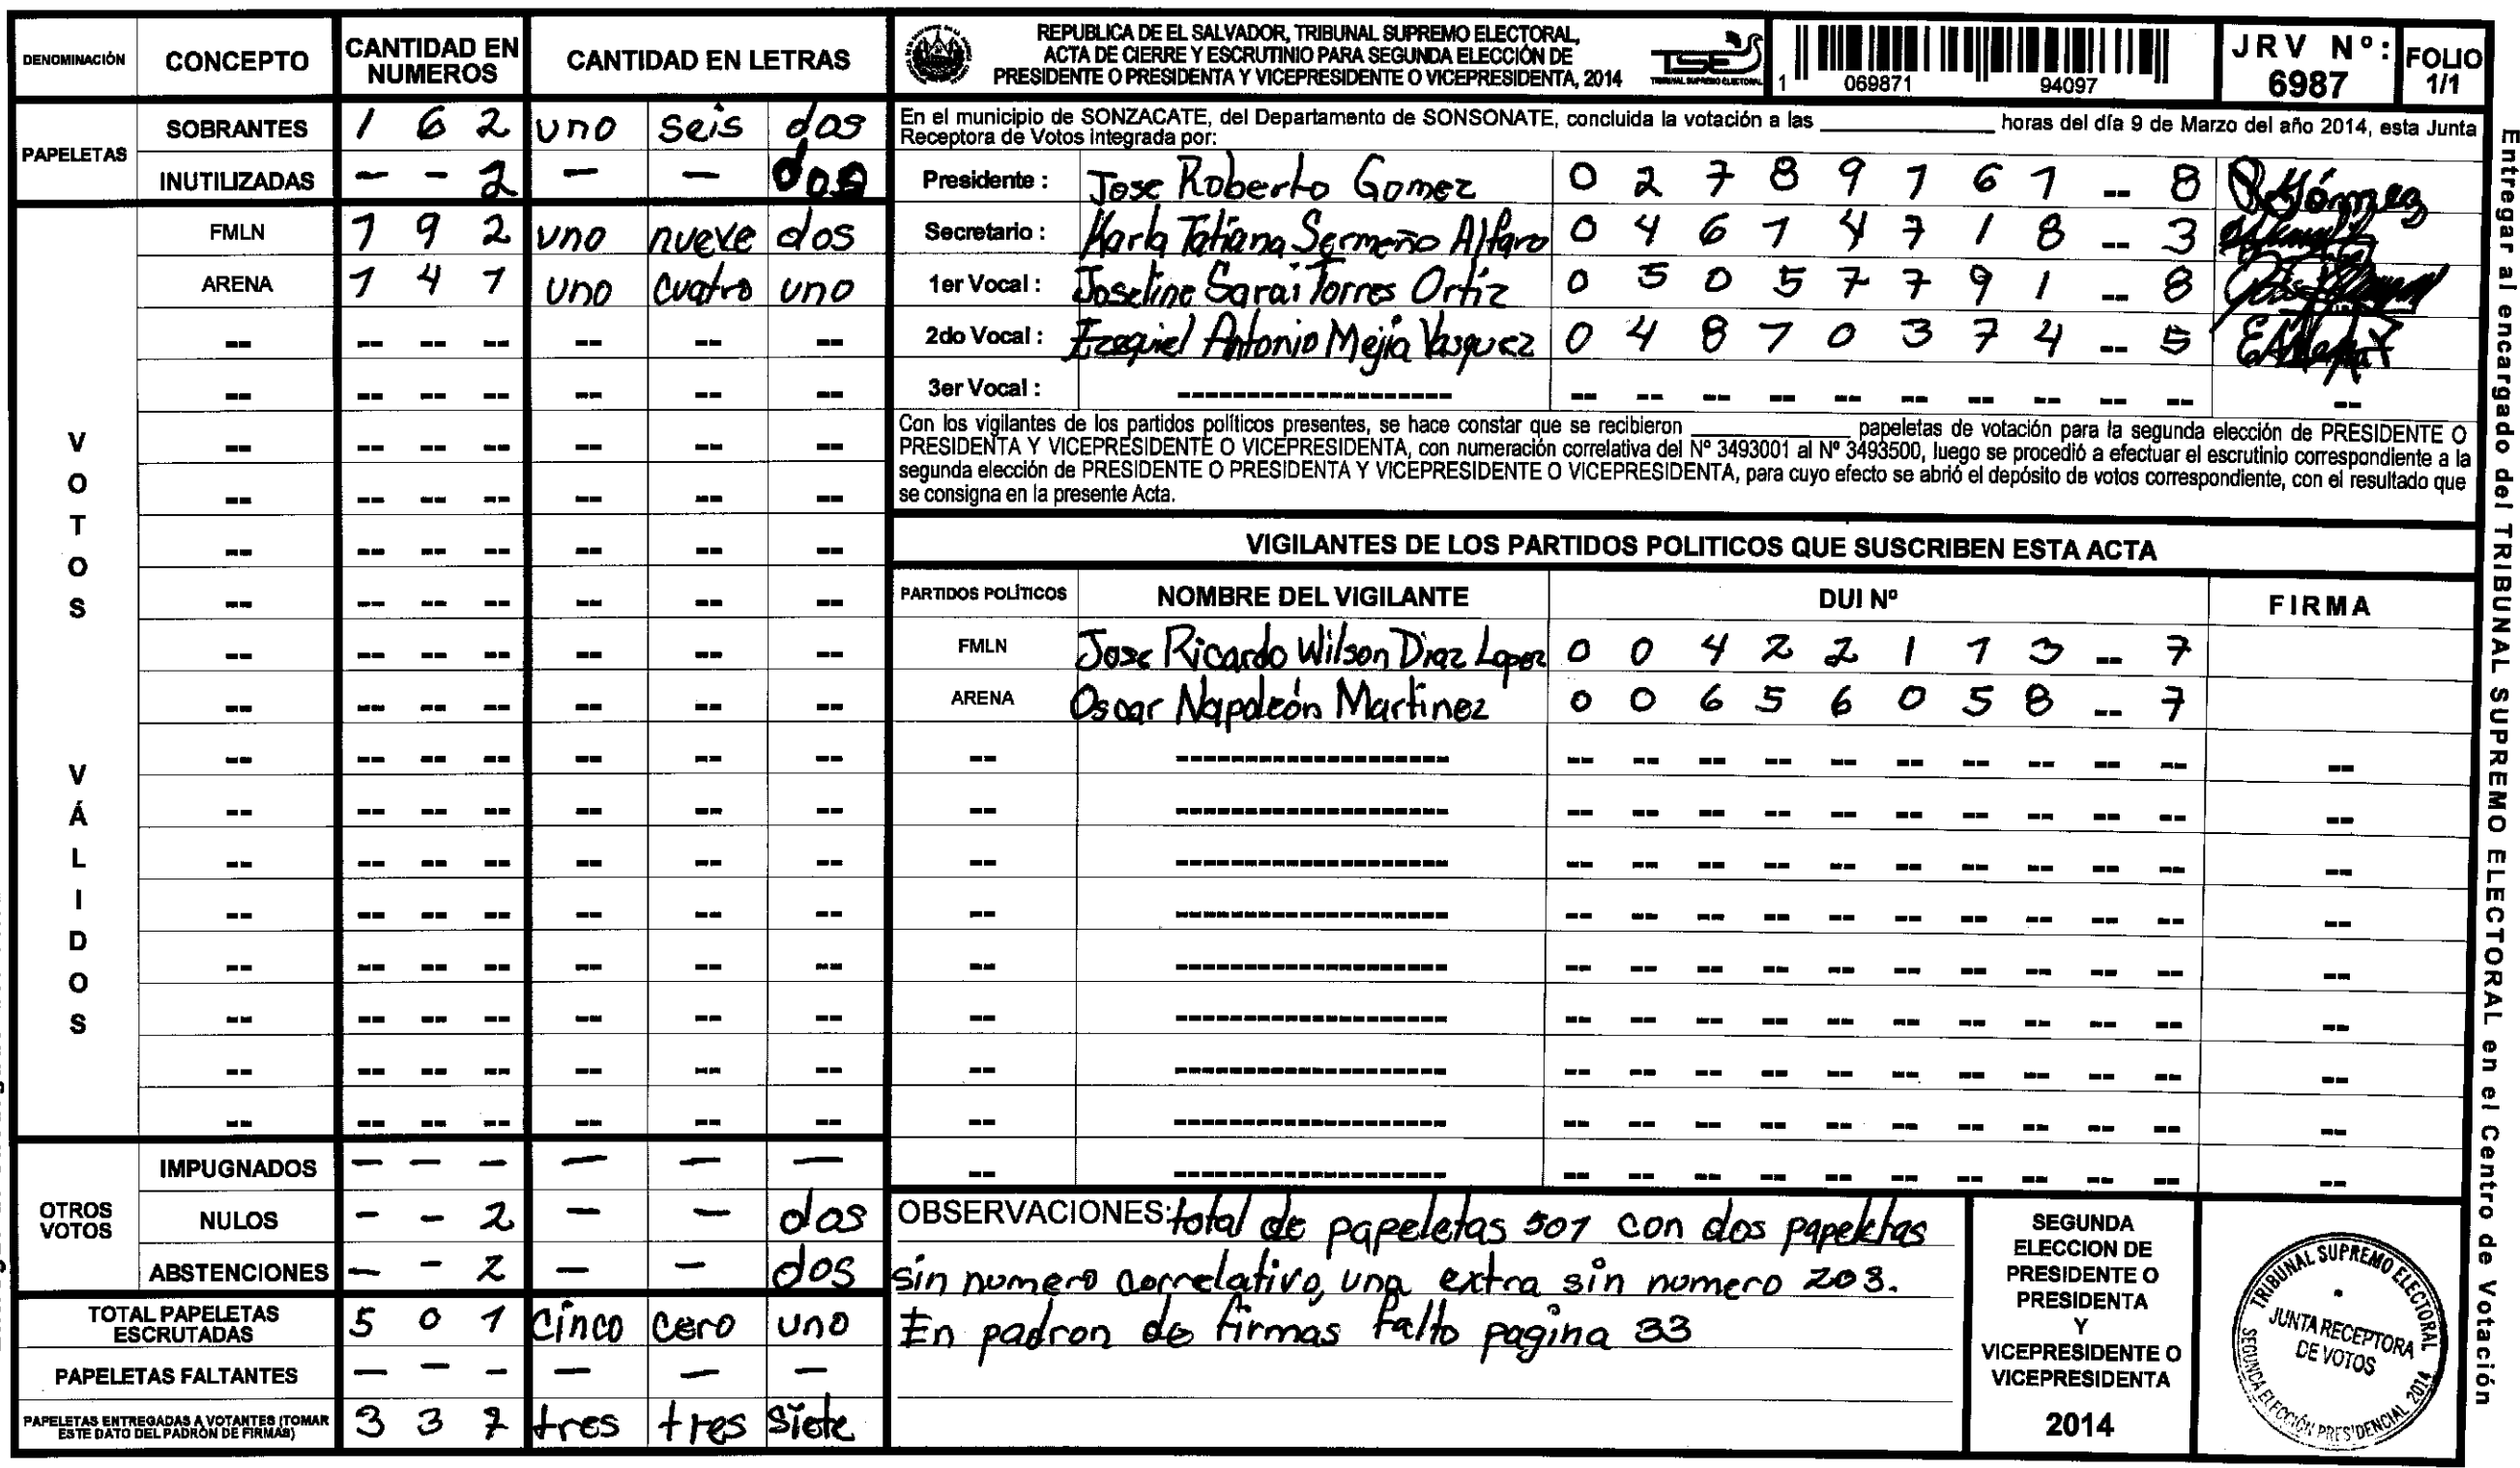 DENOMINACIÓN CONCEPTO CANTIDAD EN NUMEROS CANTIDAD EN LETRAS
PAPELETAS
SOBRANTES 1 6 2 uno seis dos
INUTILIZADAS - - 2 - - dos
VOTOS VÁLIDOS
FMLN 1 9 2 uno nueve dos
ARENA 1 4 1 uno cuatro uno
OTROS VOTOS
IMPUGNADOS - - - - - -
NULOS - - 2 - - dos
ABSTENCIONES - - 2 - - dos
TOTAL PAPELETAS ESCRUTADAS 5 0 1 cinco cero uno
PAPELETAS FALTANTES - - - - - -
PAPELETAS ENTREGADAS A VOTANTES (TOMAR ESTE DATO DEL PADRÓN DE FIRMAS) 3 3 7 tres tres siete
REPUBLICA DE EL SALVADOR, TRIBUNAL SUPREMO ELECTORAL,
ACTA DE CIERRE Y ESCRUTINIO PARA SEGUNDA ELECCIÓN DE
PRESIDENTE O PRESIDENTA Y VICEPRESIDENTE O VICEPRESIDENTA, 2014
TSE
TRIBUNAL SUPREMO ELECTORAL
1 069871 94097
JRV Nº: 6987
FOLIO 1/1
En el municipio de SONZACATE, del Departamento de SONSONATE, concluida la votación a las ____________ horas del día 9 de Marzo del año 2014, esta Junta
Receptora de Votos integrada por:
Presidente : Jose Roberto Gomez 0 2 7 8 9 1 6 1 -- 8
Secretario : Karla Tatiana Sermeño Alfaro 0 4 6 1 4 7 1 8 -- 3
1er Vocal : Joseline Sarai Torres Ortiz 0 5 0 5 7 7 9 1 -- 8
2do Vocal : Ezequiel Antonio Mejia Vasquez 0 4 8 7 0 3 7 4 -- 5
3er Vocal : --------------------
Con los vigilantes de los partidos políticos presentes, se hace constar que se recibieron ____________ papeletas de votación para la segunda elección de PRESIDENTE O
PRESIDENTA Y VICEPRESIDENTE O VICEPRESIDENTA, con numeración correlativa del Nº 3493001 al Nº 3493500, luego se procedió a efectuar el escrutinio correspondiente a la
segunda elección de PRESIDENTE O PRESIDENTA Y VICEPRESIDENTE O VICEPRESIDENTA, para cuyo efecto se abrió el depósito de votos correspondiente, con el resultado que
se consigna en la presente Acta.
VIGILANTES DE LOS PARTIDOS POLITICOS QUE SUSCRIBEN ESTA ACTA
PARTIDOS POLÍTICOS NOMBRE DEL VIGILANTE DUI Nº FIRMA
FMLN Jose Ricardo Wilson Diaz Lopez 0 0 4 2 2 1 1 3 -- 7
ARENA Oscar Napoleón Martinez 0 0 6 5 6 0 5 8 -- 7
OBSERVACIONES: total de papeletas 501 con dos papeletas
sin numero correlativo, una extra sin numero 203.
En padron de firmas falto pagina 33
SEGUNDA
ELECCION DE
PRESIDENTE O
PRESIDENTA
Y
VICEPRESIDENTE O
VICEPRESIDENTA
2014
TRIBUNAL SUPREMO ELECTORAL
JUNTA RECEPTORA
DE VOTOS
SEGUNDA ELECCIÓN PRESIDENCIAL 2014
Entregar al encargado del TRIBUNAL SUPREMO ELECTORAL en el Centro de Votación